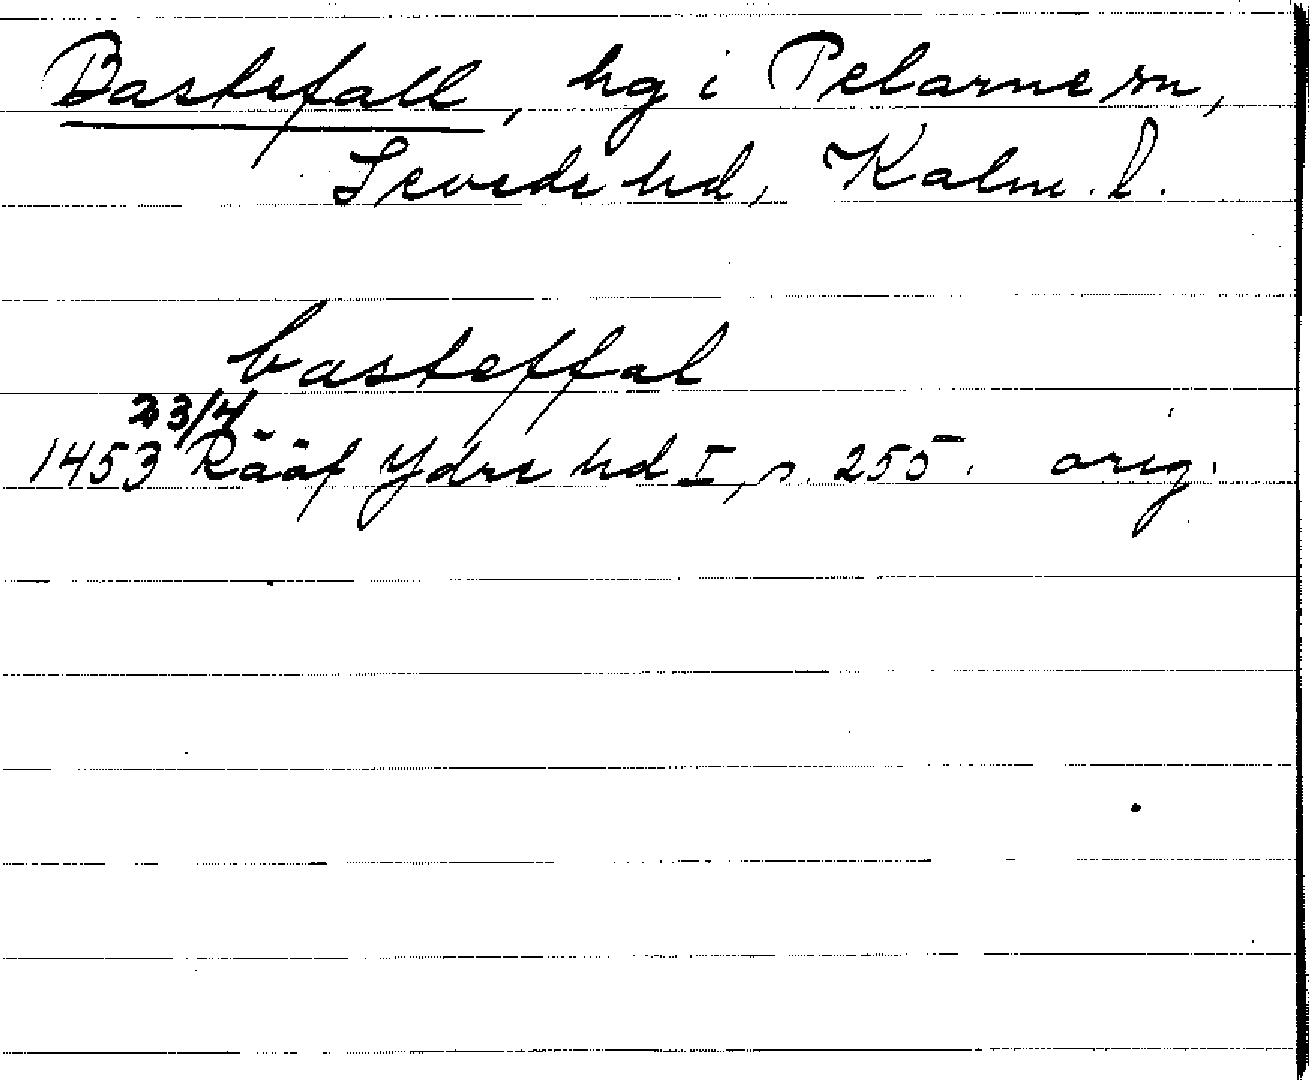 Bastefall, hg i Pelarne sn,
Sevede hd, Kalm. l.
basteffal
23/4
1453 Rääf Ydre hd I, s. 255. orig.